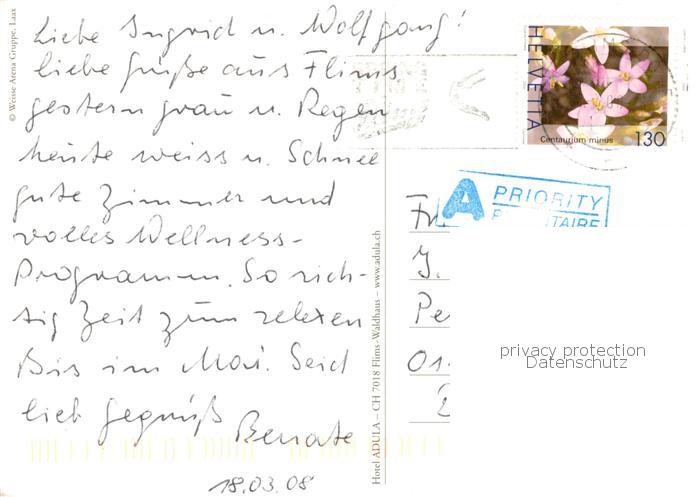 Liebe Ingrid u. Wolfgang!
liebe Grüße aus Flims
gestern grau u. Regen
heute weiss u. Schnee
gute Zimmer und
volles Wellness-
Programm. So rich-
tig Zeit zum relexen
Bis im Mai. Seid
lieb gegrüß
Renate
18.03.08
© Weisse Arena Gruppe, Laax
Hotel ADULA – CH 7018 Flims-Waldhaus – www.adula.ch
HELVETIA
Centaurium minus 130
A PRIORITY
J.
Pe
01
privacy protection
Datenschutz